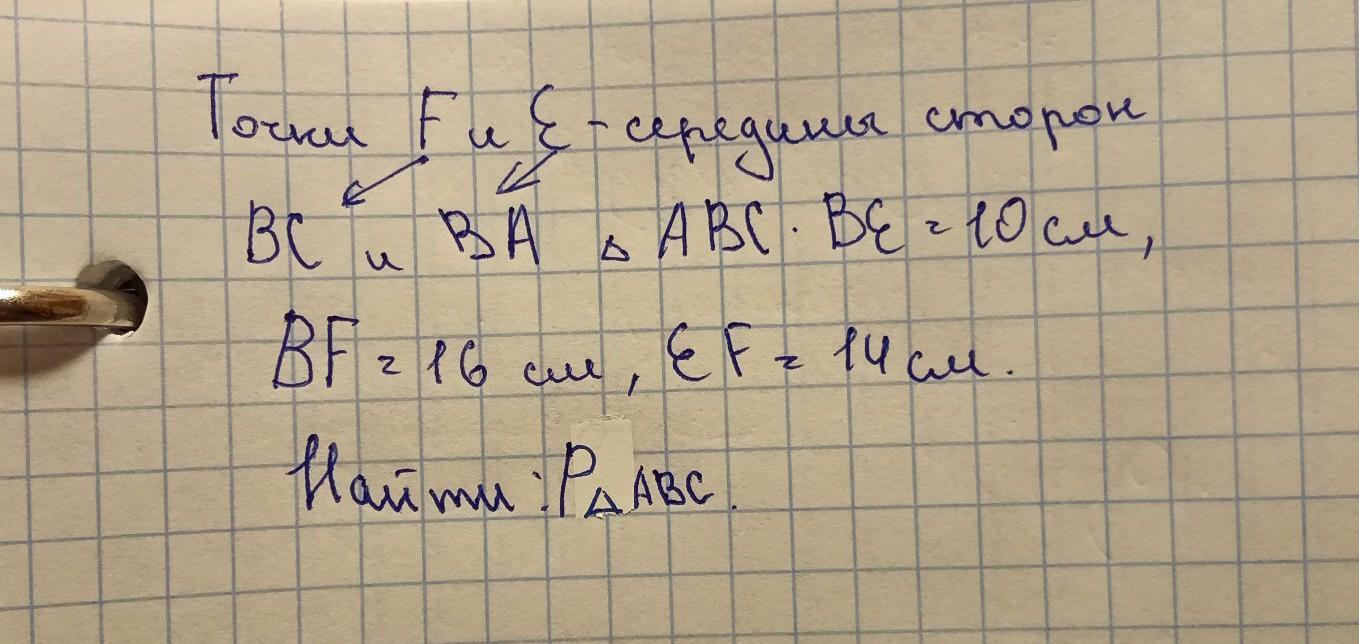 Точки F и E - середины сторон
BC и BA △ ABC. BE = 10 см,
BF = 16 см, EF = 14 см.
Найти: P△ABC.